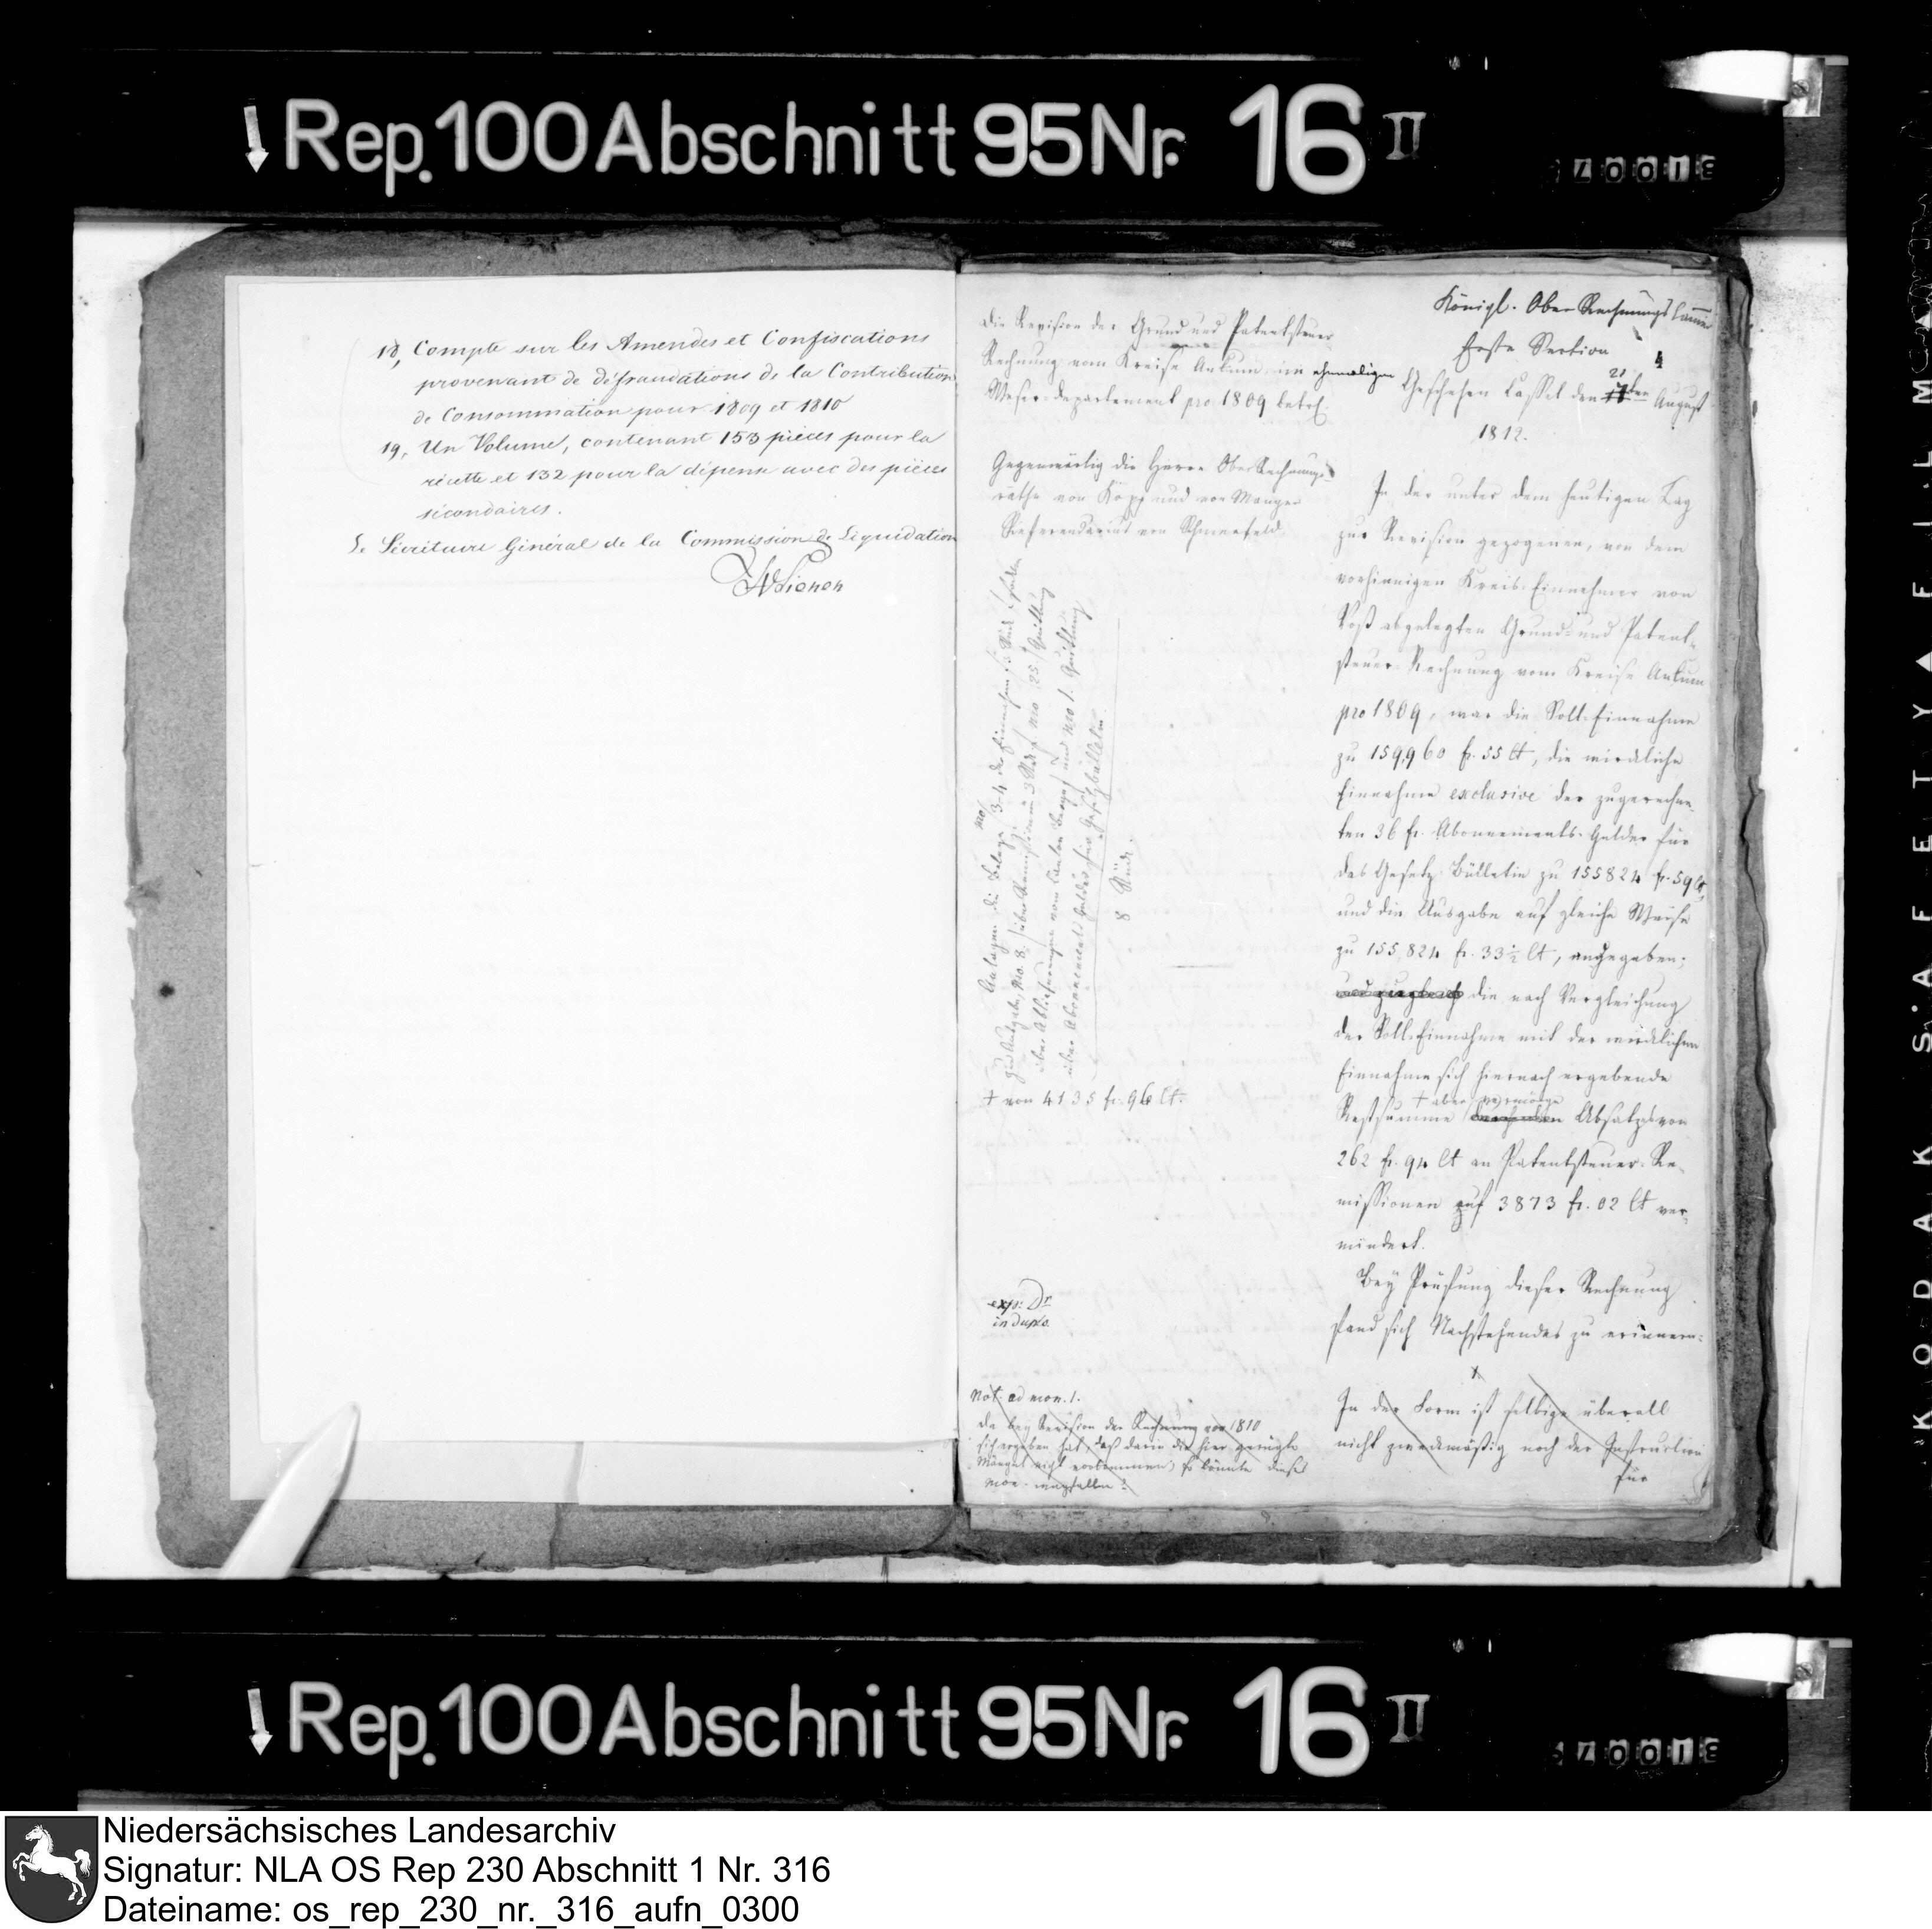 Rep. 100 Abschnitt 95 Nr. 16 II
18, Compte sur les Amendes et Confiscations
provenant de défraudations de la Contribution
de Consommation pour 1809 et 1810
19, Un Volume, contenant 153 pièces pour la
récette et 132 pour la dépense avec des pièces
sécondaires.
Le Sécrétaire Général de la Commission de Liquidation
Königl. Ober Rechnungs Cammer
Erste Section
4
Geschehen Cassel den 21ten August
1812.
Die Revision der Grund und Patentsteuer
Rechnung vom Kreise Ankum im ehemaligen
Weser-departement pro 1809 betref.
Gegenwärtig die Herren Ober Rechnungs-
räthe von Kopp und von Manger
Referendariat von Schmerfeld
Anlagen die Belege No 3-4 der Einnahme
über Ablieferungen vom Canton Berge und No 1. Quittung
über Abonnements Gelder fürs Gesetzbülletin
8 Stück.
In der unter dem heutigen Tag
zur Revision gezogenen, von dem
vorhinnigen Kreis-Einnehmer von
Voß abgelegten Grund- und Patent-
steuer-Rechnung vom Kreise Ankum
pro 1809, war die Soll-Einnahme
zu 159,960 fr. 55 Ct, die wirkliche
Einnahme exclusive der zugerechne-
ten 36 fr. Abonnements-Gelder für
das Gesetz-Bülletin zu 155824 fr. 59 Ct,
und die Ausgabe auf gleiche Weise
zu 155,824 fr. 33½ Ct, angegeben;
die nach Vergleichung
der Soll-Einnahme mit der wirklichen
Einnahme sich hiernach ergebende
Restsumme + aber vermöge Absatzes von
+ von 4135 fr. 96 Ct.
262 fr. 94 Ct an Patentsteuer-Re-
missionen auf 3873 fr. 02 Ct ver-
mindert.
Bey Prüfung dieser Rechnung
fand sich Nachstehendes zu erinnern:
exp: Dr
in duplo.
In der Form ist selbige überall
nicht zweckmäßig noch der Instruction
für
Not. ad mon. 1.
Da bey Revision der Rechnung von 1810
sich ergeben hat, daß darin die hier gerügte
Mängel nicht vorkommen, so könnte dieses
mon. wegfallen?
Rep. 100 Abschnitt 95 Nr. 16 II
KODAK SAFETY FILM
Niedersächsisches Landesarchiv
Signatur: NLA OS Rep 230 Abschnitt 1 Nr. 316
Dateiname: os_rep_230_nr._316_aufn_0300